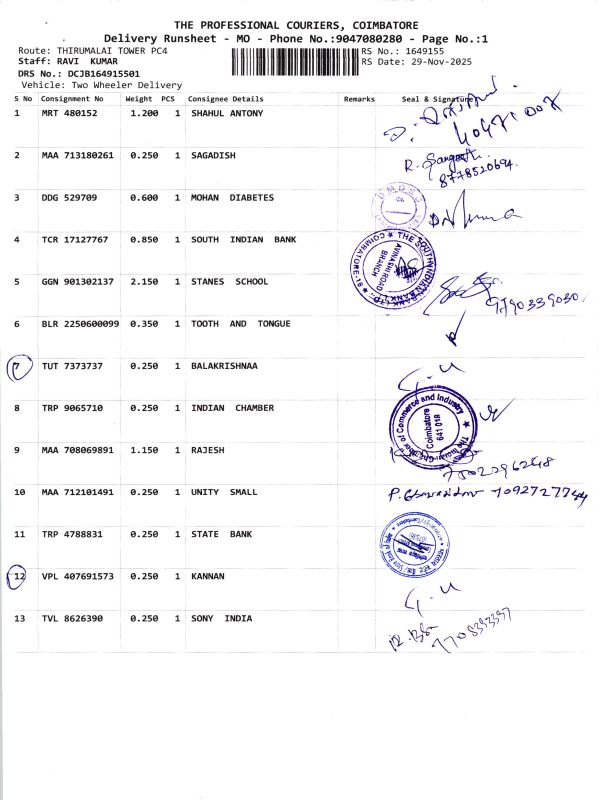 THE PROFESSIONAL COURIERS, COIMBATORE
Delivery Runsheet - MO - Phone No.:9047080280 - Page No.:1
Route: THIRUMALAI TOWER PC4 RS No.: 1649155
Staff: RAVI KUMAR RS Date: 29-Nov-2025
DRS No.: DCJB164915501
Vehicle: Two Wheeler Delivery
S No Consignment No Weight PCS Consignee Details Remarks Seal & Signature
1 MRT 480152 1.200 1 SHAHUL ANTONY
2 MAA 713180261 0.250 1 SAGADISH
8778520694.
3 DDG 529709 0.600 1 MOHAN DIABETES
4 TCR 17127767 0.850 1 SOUTH INDIAN BANK
THE SOUTH INDIAN BANK LTD. COIMBATORE-18
AVINASHI ROAD
BRANCH
5 GGN 901302137 2.150 1 STANES SCHOOL
9790339030
6 BLR 2250600099 0.350 1 TOOTH AND TONGUE
7 TUT 7373737 0.250 1 BALAKRISHNAA
8 TRP 9065710 0.250 1 INDIAN CHAMBER
The Indian Chamber of Commerce and Industry
Coimbatore
641 018
9 MAA 708069891 1.150 1 RAJESH
10 MAA 712101491 0.250 1 UNITY SMALL
11 TRP 4788831 0.250 1 STATE BANK
12 VPL 407691573 0.250 1 KANNAN
13 TVL 8626390 0.250 1 SONY INDIA